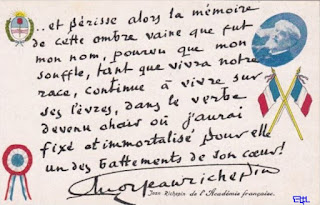 ...et périsse alors la mémoire
de cette ombre vaine que fut
mon nom, pourvu que mon
souffle, tant que vivra notre
race, continue à vivre sur
ses lèvres, dans le verbe
devenu chair où j'aurai
fixé et immortalisé pour elle
un des battements de son cœur!
Jean Richepin
Jean Richepin de l'Académie française.